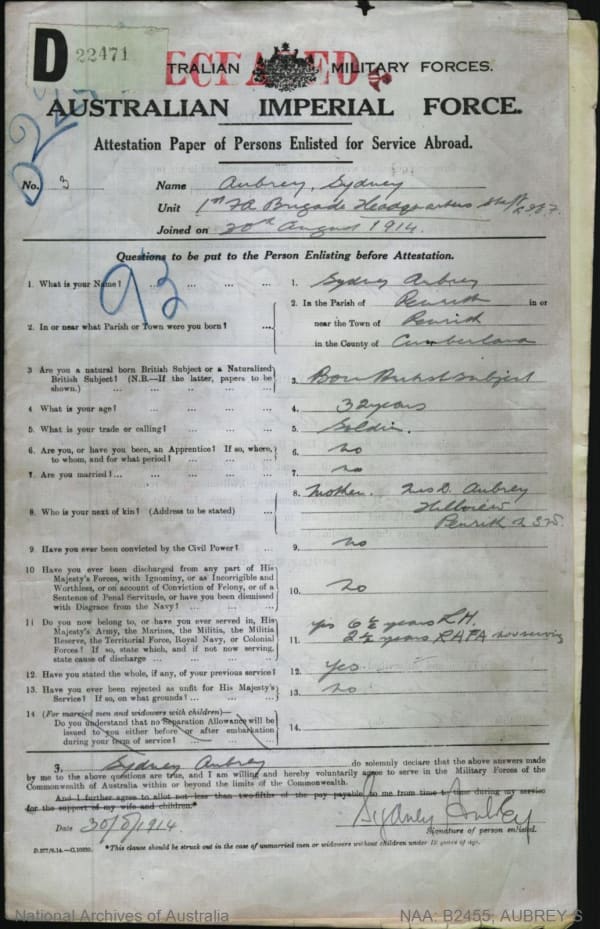 D 22471
DEFACED
AUSTRALIAN MILITARY FORCES.
AUSTRALIAN IMPERIAL FORCE.
Attestation Paper of Persons Enlisted for Service Abroad.
No. 3 Name Aubrey, Sydney
Unit 1st FA Brigade Headquarters Staff
Joined on 20th August 1914.
Questions to be put to the Person Enlisting before Attestation.
93
1. What is your Name? ... ... ... ... 1. Sydney Aubrey
2. In or near what Parish or Town were you born? ... 2. In the Parish of Penrith in or
near the Town of Penrith
in the County of Cumberland
3 Are you a natural born British Subject or a Naturalized
British Subject? (N.B.—If the latter, papers to be
shown.) ... ... ... ... ... 3. Born British Subject
4 What is your age? ... ... ... ... 4. 32 years
5. What is your trade or calling? ... ... ... 5. Soldier.
6. Are you, or have you been, an Apprentice? If so, where,
to whom, and for what period? ... ... ... 6. No
7. Are you married? ... ... ... ... ... 7. No
8. Who is your next of kin? (Address to be stated) ... 8. Mother. Mrs D. Aubrey
Hillview
Penrith N S W.
9. Have you ever been convicted by the Civil Power? ... 9. No
10 Have you ever been discharged from any part of His
Majesty's Forces, with Ignominy, or as Incorrigible and
Worthless, or on account of Conviction of Felony, or of a
Sentence of Penal Servitude, or have you been dismissed
with Disgrace from the Navy? ... ... ... 10. No
11 Do you now belong to, or have you ever served in, His
Majesty's Army, the Marines, the Militia, the Militia
Reserve, the Territorial Force, Royal Navy, or Colonial
Forces? If so, state which, and if not now serving,
state cause of discharge ... ... ... ... 11. yes 6½ years L.H.
2½ years RAFA now serving
12. Have you stated the whole, if any, of your previous service? 12. Yes
13. Have you ever been rejected as unfit for His Majesty's
Service? If so, on what grounds? ... ... ... 13. No
14 (For married men and widowers with children)—
Do you understand that no Separation Allowance will be
issued to you either before or after embarkation
during your term of service? ... ... ... 14.
I, Sydney Aubrey do solemnly declare that the above answers made
by me to the above questions are true, and I am willing and hereby voluntarily agree to serve in the Military Forces of the
Commonwealth of Australia within or beyond the limits of the Commonwealth.
And I further agree to allot not less than two-fifths of the pay payable to me from time to time during my service
for the support of my wife and children.*
Date 30/8/1914. Sydney Aubrey
Signature of person enlisted.
*This clause should be struck out in the case of unmarried men or widowers without children under 18 years of age.
National Archives of Australia NAA: B2455, AUBREY S